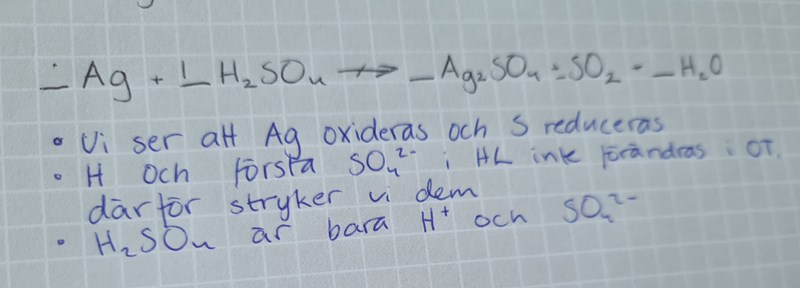 _ Ag + 1_ H₂SO₄ → _ Ag₂SO₄ + SO₂ + _ H₂O
• Vi ser att Ag oxideras och S reduceras
• H och första SO₄²⁻ i HL inte förändras i OT,
därför stryker vi dem
• H₂SO₄ är bara H⁺ och SO₄²⁻